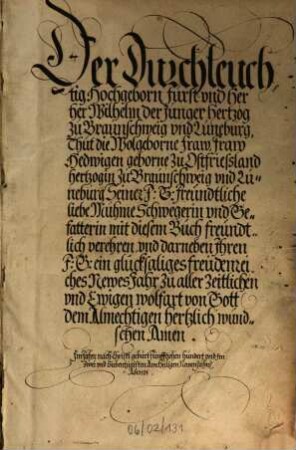 Der Durchleuch
tig Hochgeborn Fürst und Her
Her Wilhelm der Junger Hertzog
zu Braunschweig und Lüneburg,
Thut die Wolgeborne Fraw, Fraw
Hedwigen geborne zu Ostfriesland
Hertzogin zu Braunschweig und Lü-
neburg Seiner F: G: freundtliche
liebe Muhme Schwegerin und Ge-
fatterin mit diesem Buch freundt-
lich verehren, und darneben Ihren
F: G: ein glückseliges freudenrei
ches Newes Jahr zu aller Zeittlichen
und Ewigen wolfart von Gott
dem Almechtigen hertzlich wund-
schen Amen
Im Jahr nach Christi geburt funffzehen hundert und im
zwei und
06/02/131